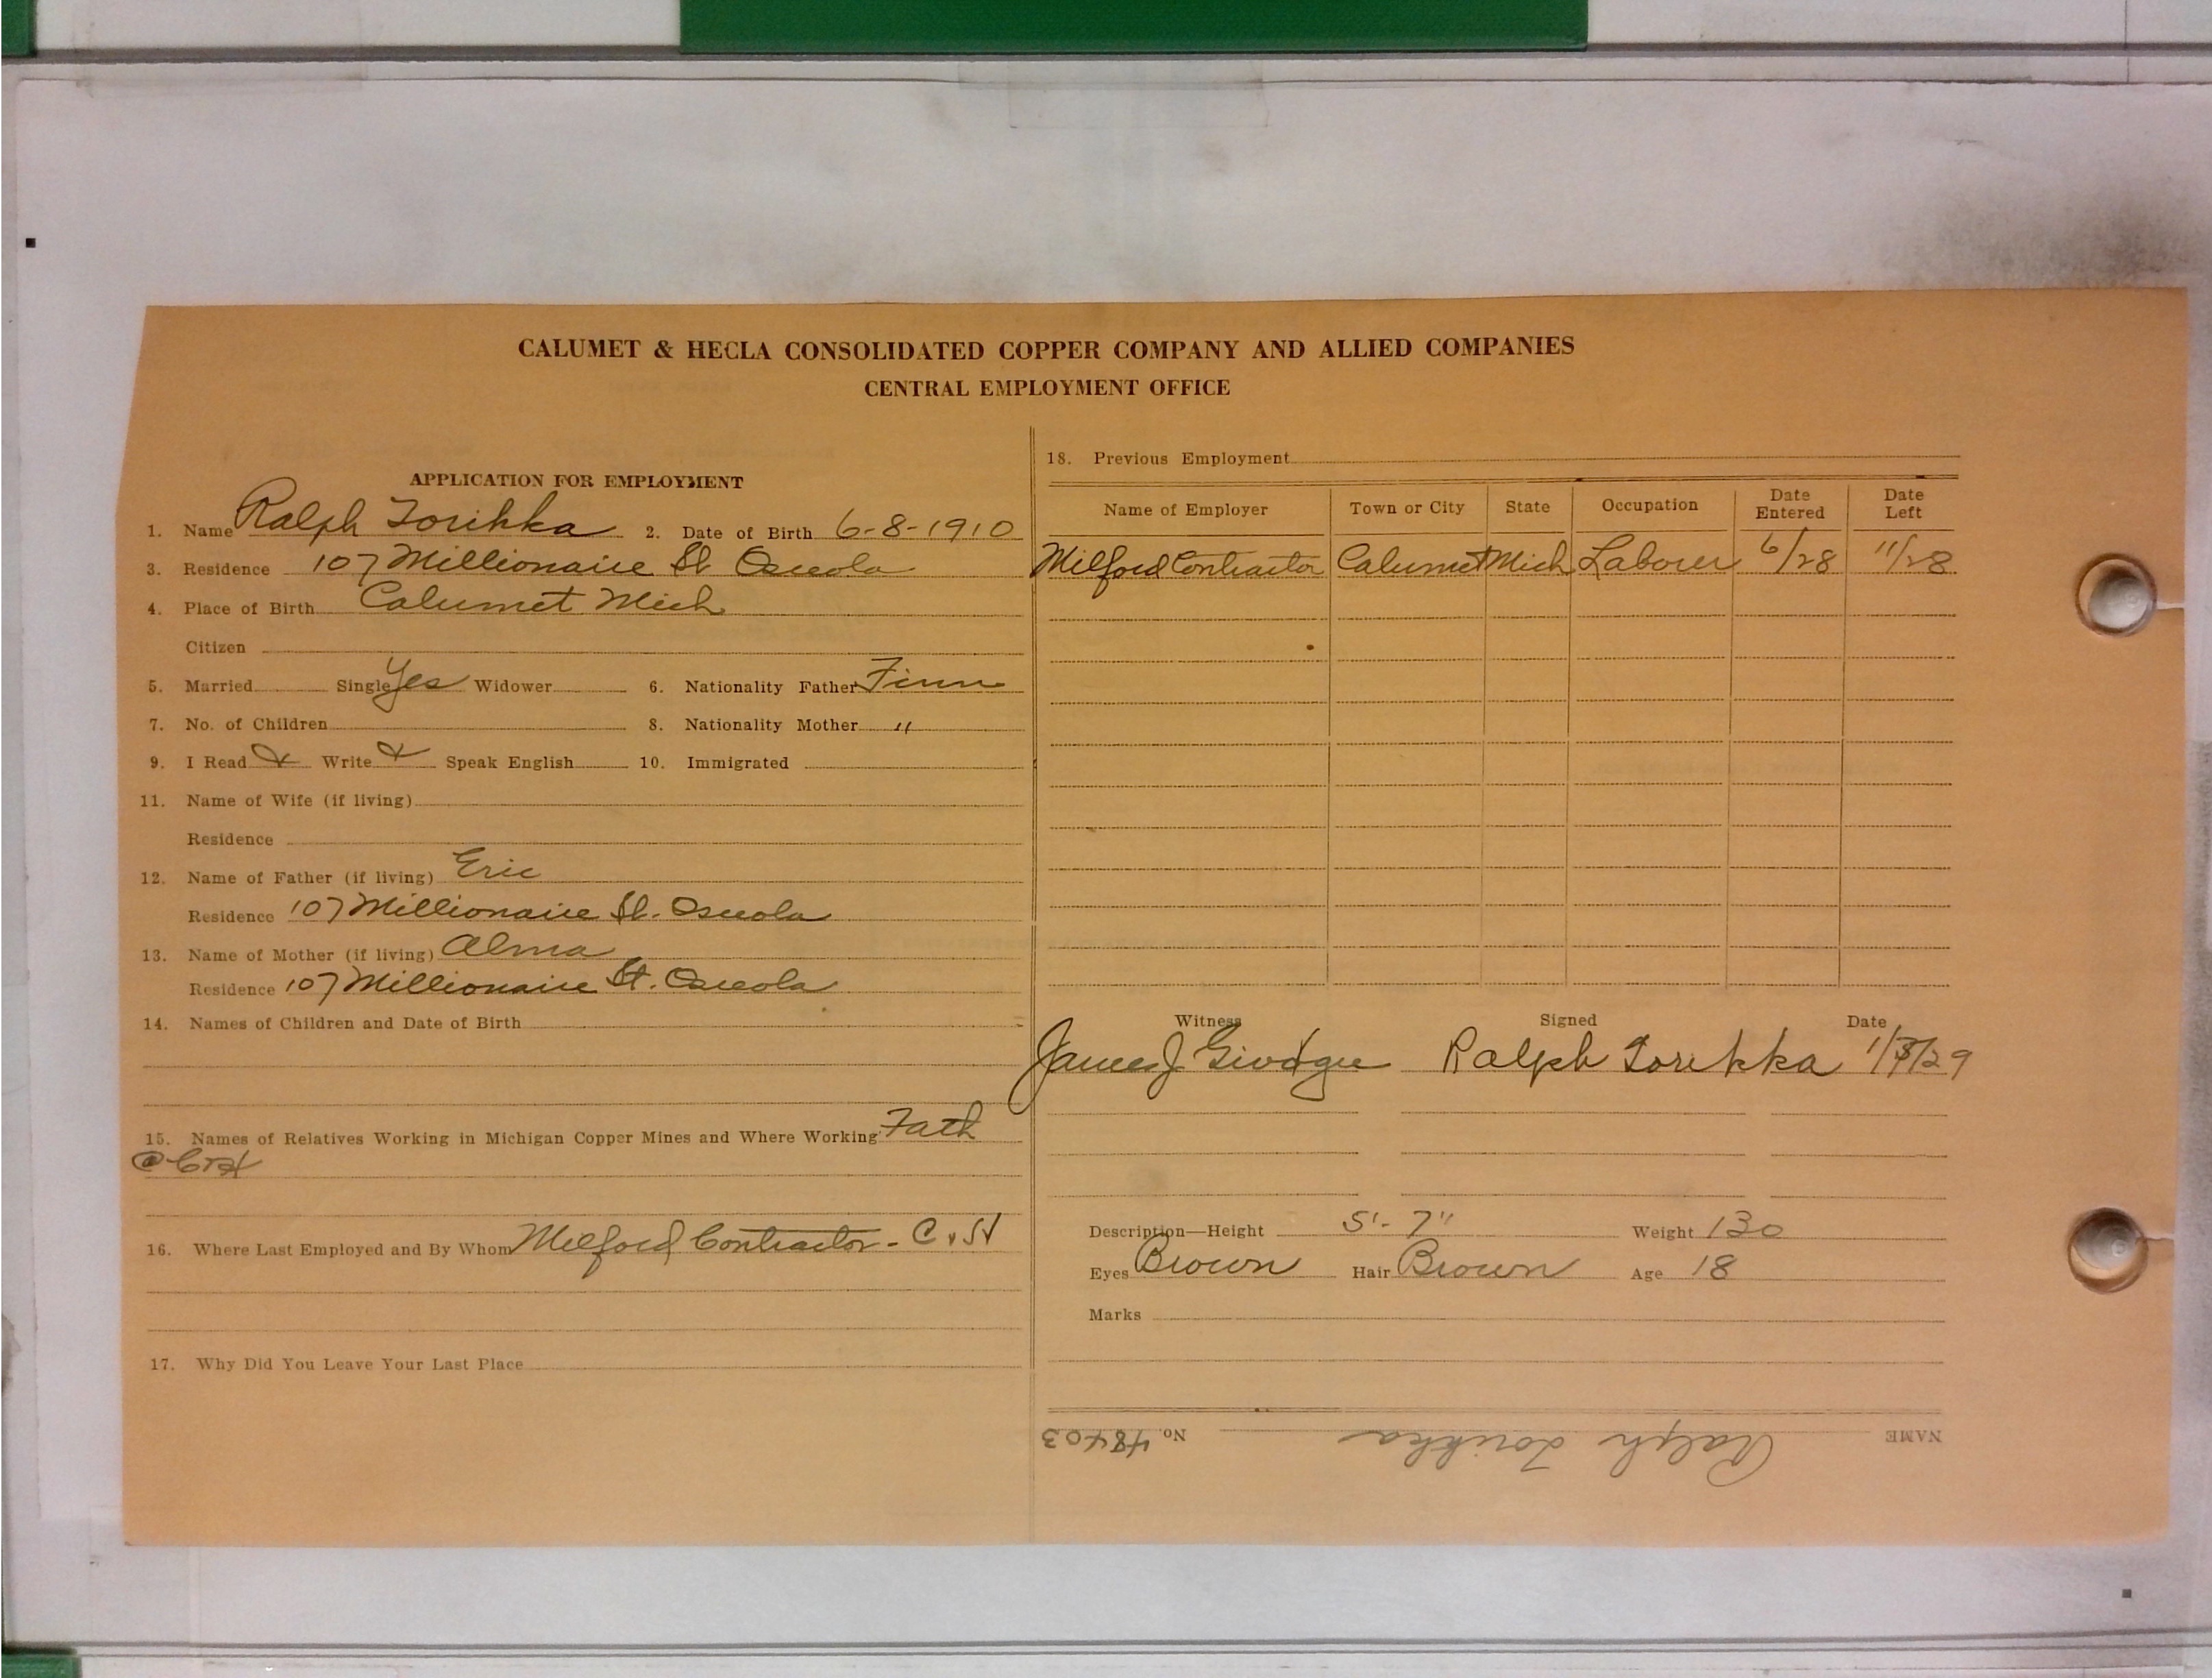 CALUMET & HECLA CONSOLIDATED COPPER COMPANY AND ALLIED COMPANIES
CENTRAL EMPLOYMENT OFFICE
APPLICATION FOR EMPLOYMENT
1. Name Ralph Torikka 2. Date of Birth 6-8-1910
3. Residence 107 Millionaire St Osceola
4. Place of Birth Calumet Mich
Citizen
5. Married Single Yes Widower 6. Nationality Father Finn
7. No. of Children 8. Nationality Mother "
9. I Read & Write & Speak English 10. Immigrated
11. Name of Wife (if living)
Residence
12. Name of Father (if living) Eric
Residence 107 Millionaire St. Osceola
13. Name of Mother (if living) Alma
Residence 107 Millionaire St. Osceola
14. Names of Children and Date of Birth
15. Names of Relatives Working in Michigan Copper Mines and Where Working Fath
@ C&H
16. Where Last Employed and By Whom Milford Contractor - C & H
17. Why Did You Leave Your Last Place
18. Previous Employment
Name of Employer Town or City State Occupation Date Entered Date Left
Milford Contractor Calumet Mich Laborer 6/28 11/28
Witness Signed Date
James J. Ralph Torikka 1/ /29
Description—Height 5'-7" Weight 130
Eyes Brown Hair Brown Age 18
Marks
NAME Ralph Torikka No. 48403